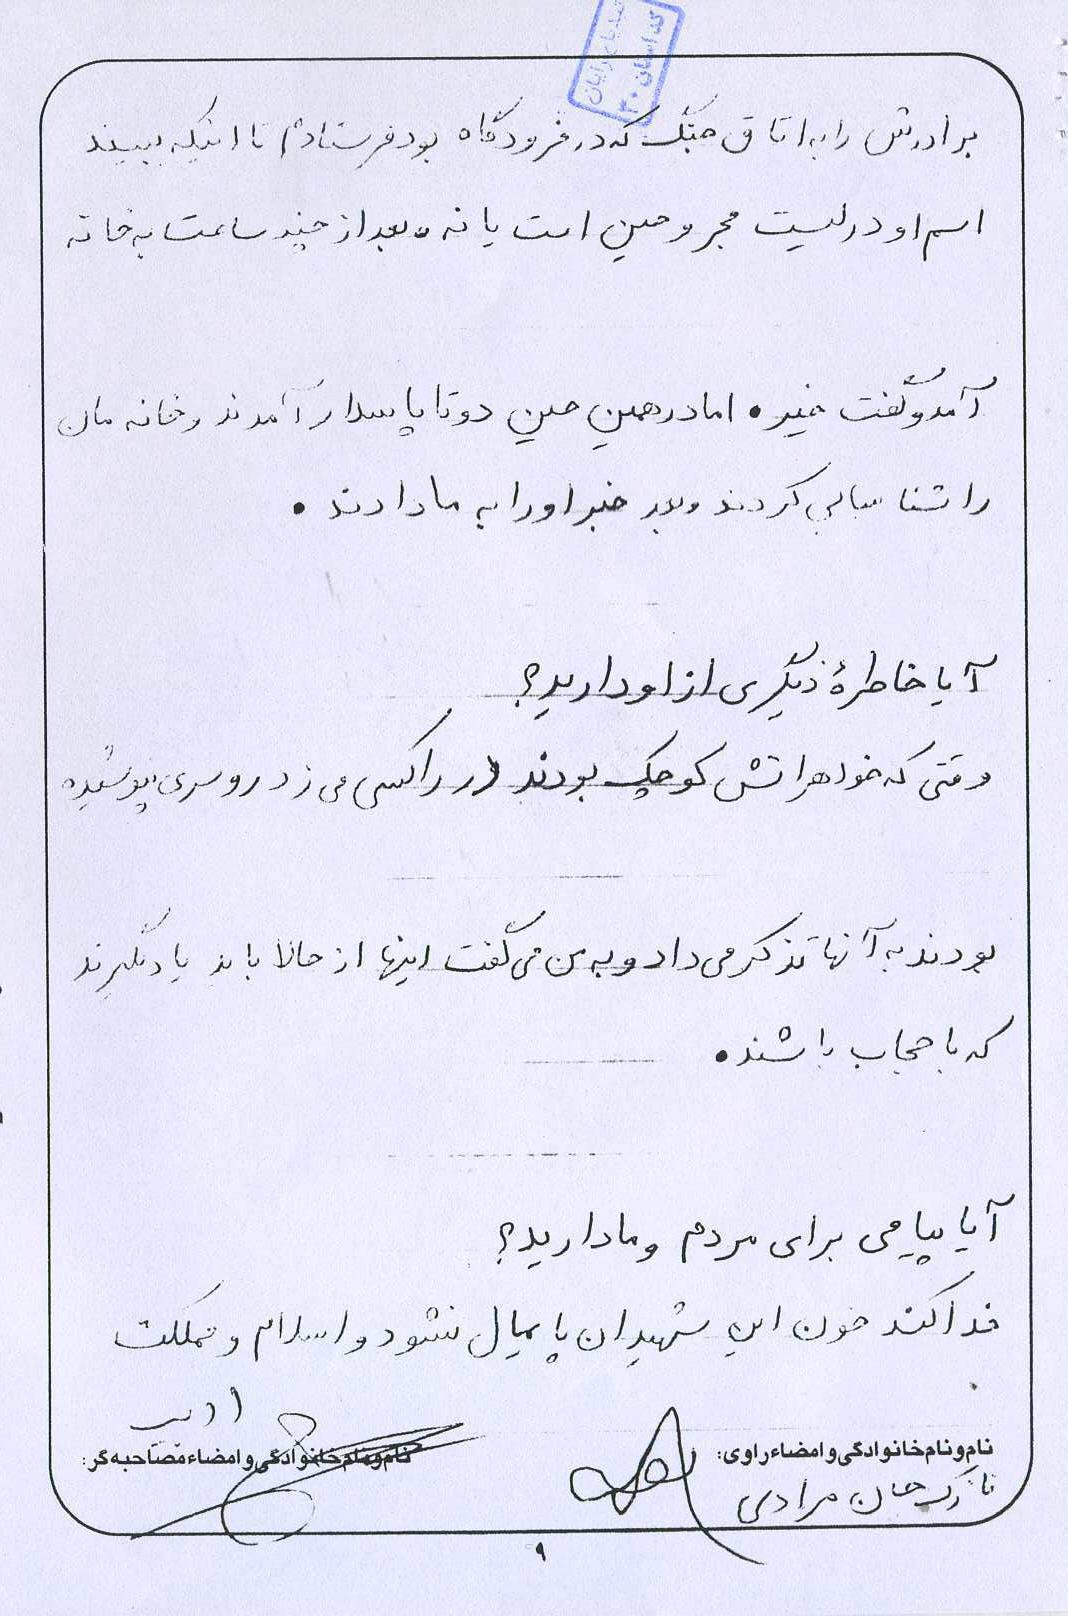 کد استان ۳۰
برادرش را به اتاق جنگ که در فرودگاه بود فرستادم تا اینکه ببیند
اسم او در لیست مجروحین است یا نه ، بعد از چند ساعت به خانه
آمد و گفت خیر . اما در همین حین دو تا پاسدار آمدند و خانه مان
را شناسایی کردند و بعد خبر او را به ما دادند .
آیا خاطرهٔ دیگری از او دارید؟
وقتی که خواهرانش کوچک بودند در را کسی می زد روسری نپوشیده
بودند به آنها تذکر می داد و به من می گفت اینها از حالا باید یاد بگیرند
که با حجاب باشند .
آیا پیامی برای مردم و ما دارید؟
خدا کند خون این شهیدان پایمال نشود و اسلام و مملکت
نام و نام خانوادگی و امضاء راوی:
نازک جان مرادی
نام و نام خانوادگی و امضاء مصاحبه گر:
۹